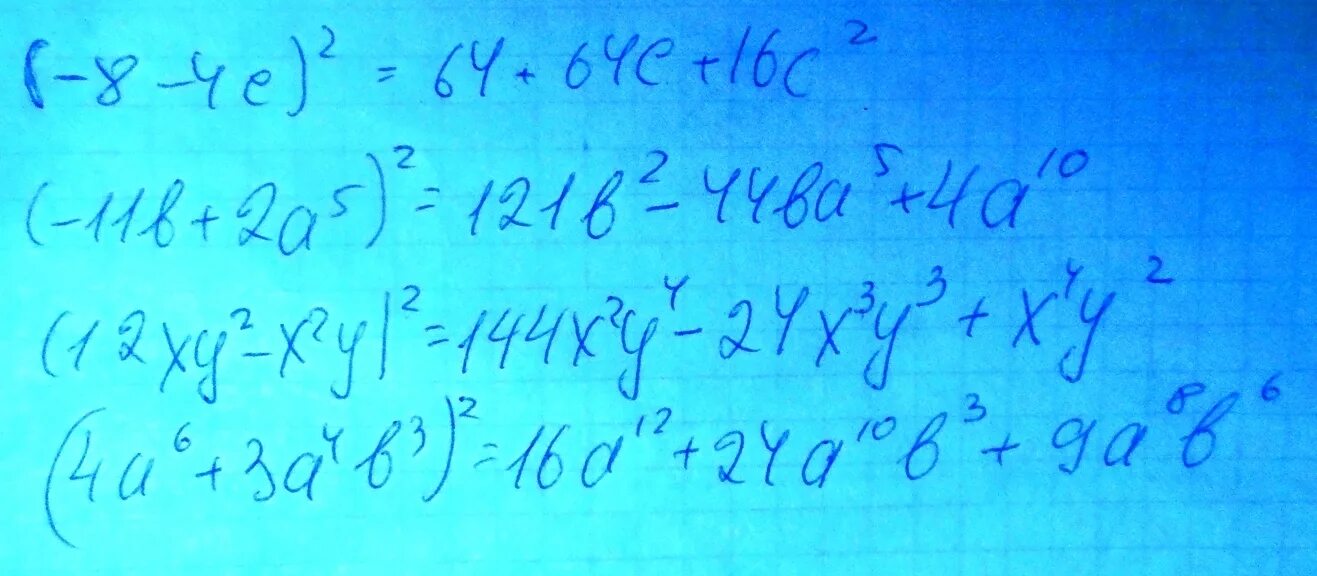 (-8-4c)² = 64 + 64c + 16c²
(-11b + 2a⁵)² = 121b² - 44ba⁵ + 4a¹⁰
(12xy² - x²y)² = 144x²y⁴ - 24x³y³ + x⁴y²
(4a⁶ + 3a⁴b³)² = 16a¹² + 24a¹⁰b³ + 9a⁸b⁶